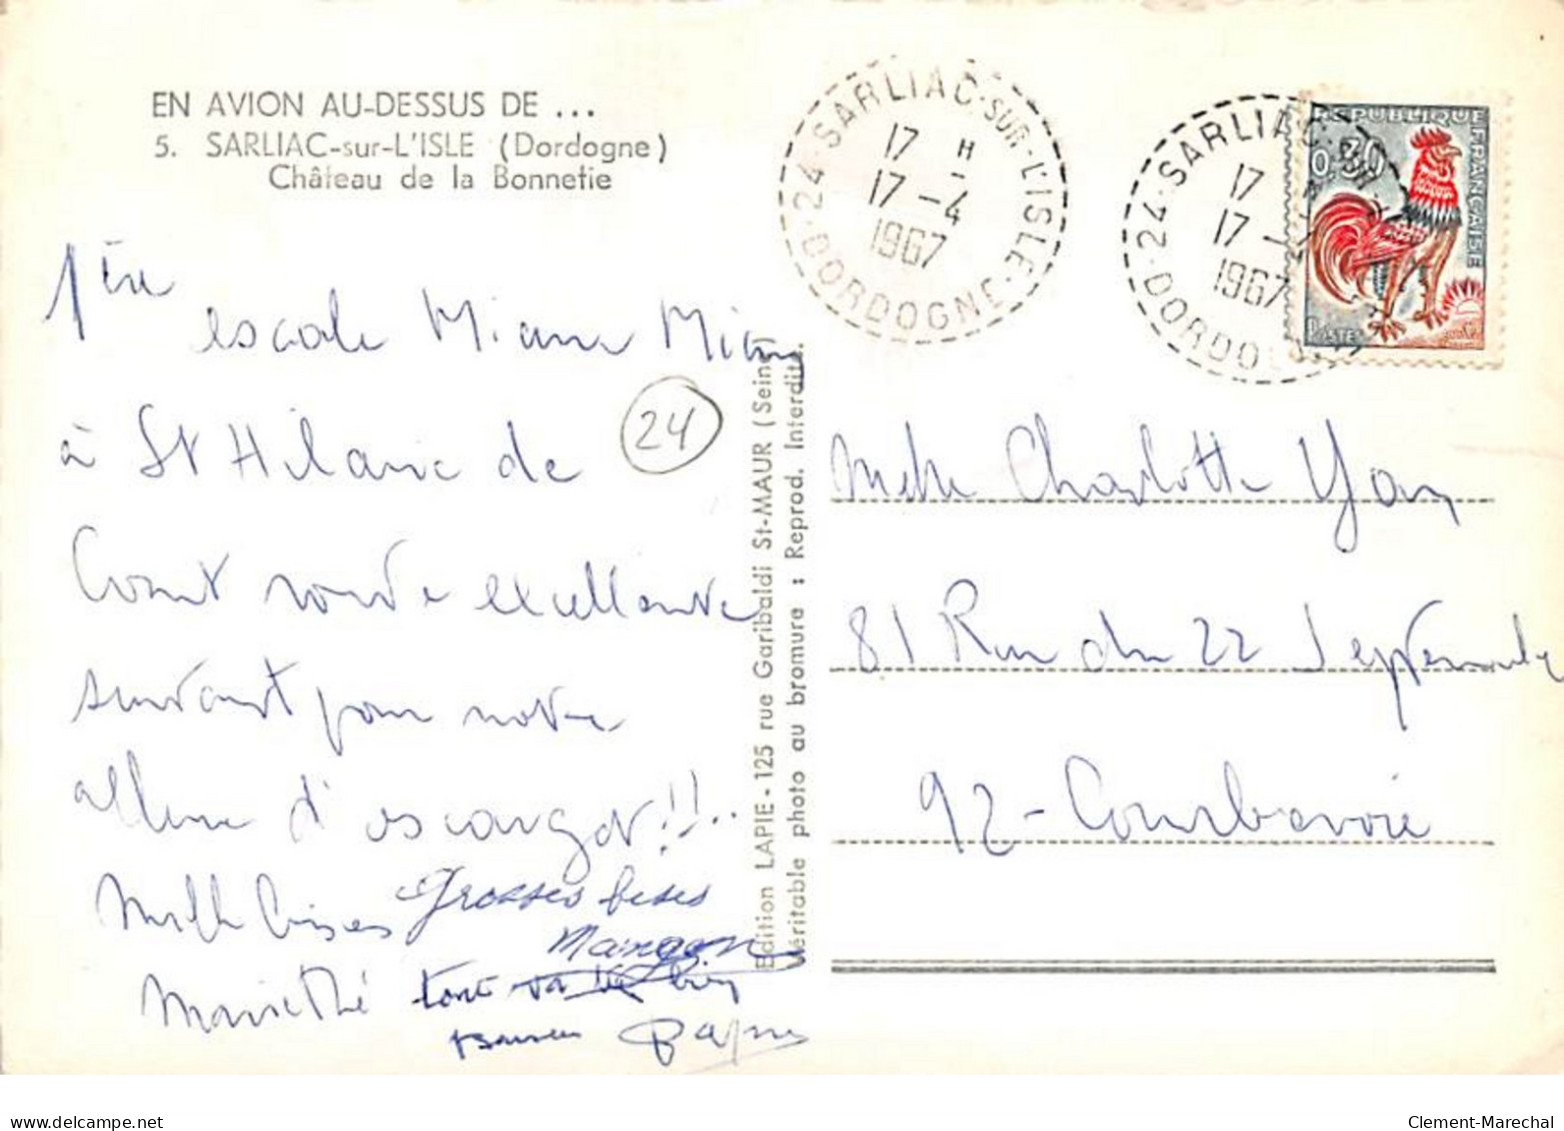 EN AVION AU-DESSUS DE ...
5. SARLIAC-sur-L'ISLE (Dordogne)
Château de la Bonnetie
1ère
escale Miam Miam
à St Hilaire de
24
route excellente
suivant pour notre
allure d'escargot!!..
Mille bises
Grosses bises
Manon
Marie Thé
tout va bien
Baisers Papa
Edition LAPIE - 125 rue Garibaldi St-MAUR (Seine)
Véritable photo au bromure : Reprod. Interdite.
24 · SARLIAC-SUR-L'ISLE · DORDOGNE
17 H
17 -4
1967
24 · SARLIAC-SUR · DORDO
17
17 -4
1967
REPUBLIQUE FRANÇAISE
0,30
POSTES
Melle Charlotte
81 Rue du 22 Septembre
92 - Courbevoie
Clement-Marechal